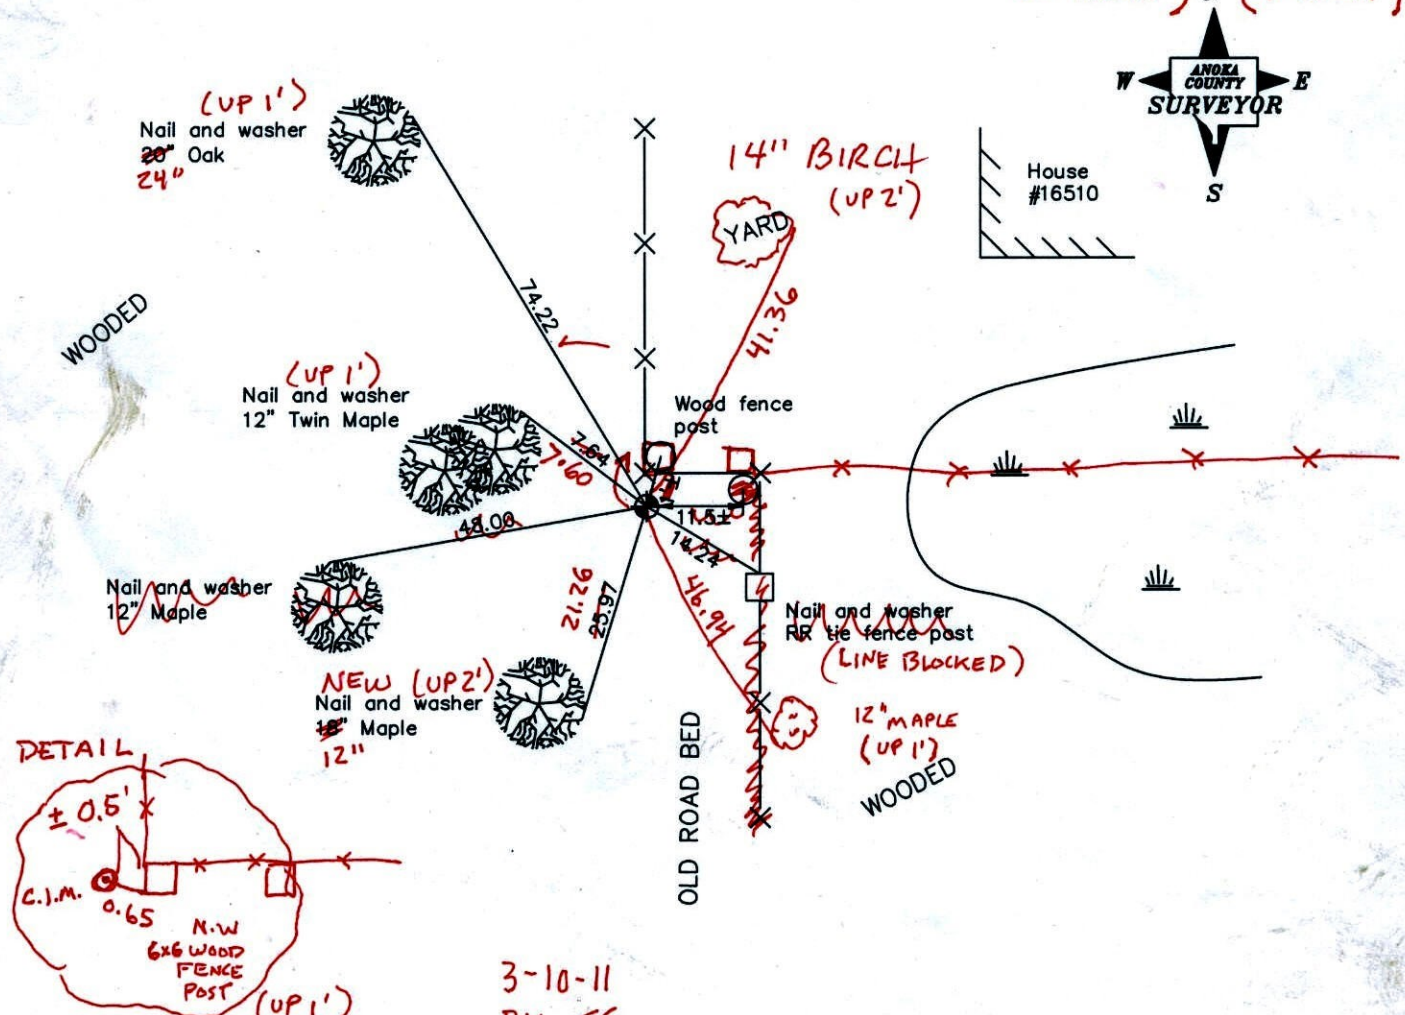 W
E
ANOKA
COUNTY
SURVEYOR
S
(UP 1')
Nail and washer
20" Oak
24"
14" BIRCH
(UP 2')
YARD
House
#16510
WOODED
74.22
41.36
(UP 1')
Nail and washer
12" Twin Maple
Wood fence
post
7.64
7.60
48.00
11.5±
14.24
Nail and washer
12" Maple
21.26
25.97
46.94
Nail and washer
RR tie fence post
(LINE BLOCKED)
NEW (UP 2')
Nail and washer
18" Maple
12"
12" MAPLE
(UP 1')
WOODED
OLD ROAD BED
DETAIL
± 0.5'
C.I.M.
0.65
N.W
6x6 WOOD
FENCE
POST
(UP 1')
3-10-11